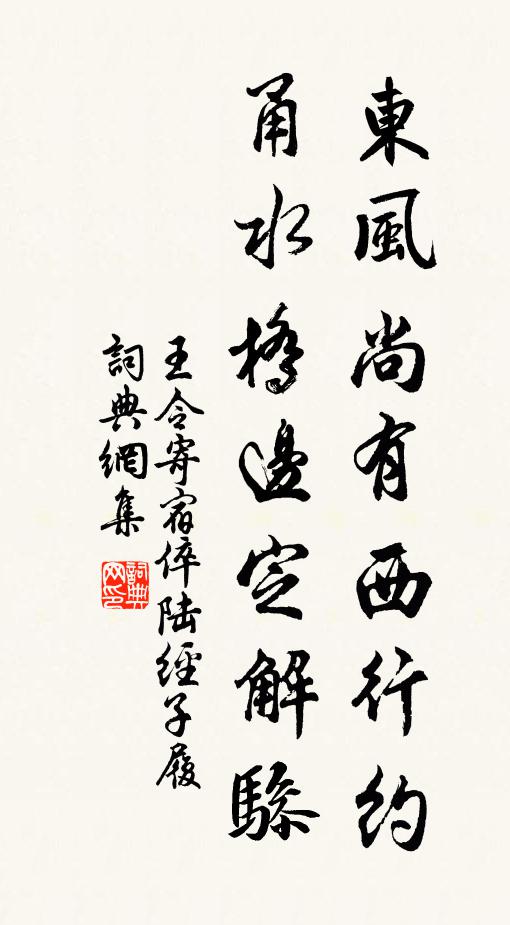 東風尚有西行約
甬水橋邊定解驂
王令寄宿倅陸經子履
詞典網集
詞典網印